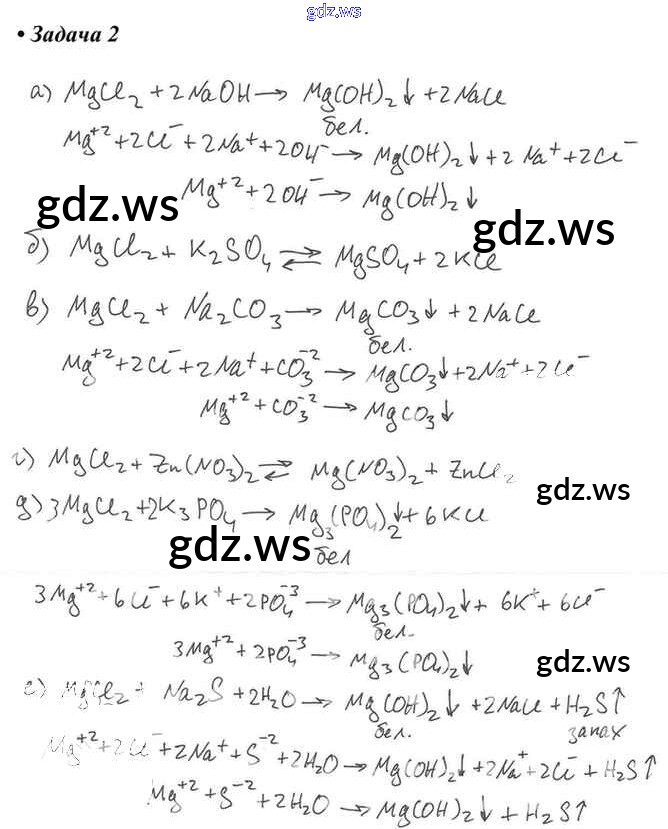 gdz.ws
• Задача 2
а) MgCl₂ + 2NaOH → Mg(OH)₂↓ + 2NaCl
бел.
Mg⁺² + 2Cl⁻ + 2Na⁺ + 2OH⁻ → Mg(OH)₂↓ + 2Na⁺ + 2Cl⁻
Mg⁺² + 2OH⁻ → Mg(OH)₂↓
gdz.ws
gdz.ws
б) MgCl₂ + K₂SO₄ ⇄ MgSO₄ + 2KCl
в) MgCl₂ + Na₂CO₃ → MgCO₃↓ + 2NaCl
бел.
Mg⁺² + 2Cl⁻ + 2Na⁺ + CO₃⁻² → MgCO₃↓ + 2Na⁺ + 2Cl⁻
Mg⁺² + CO₃⁻² → MgCO₃↓
г) MgCl₂ + Zn(NO₃)₂ ⇄ Mg(NO₃)₂ + ZnCl₂
gdz.ws
д) 3MgCl₂ + 2K₃PO₄ → Mg₃(PO₄)₂↓ + 6KCl
gdz.ws
бел
3Mg⁺² + 6Cl⁻ + 6K⁺ + 2PO₄⁻³ → Mg₃(PO₄)₂↓ + 6K⁺ + 6Cl⁻
бел.
3Mg⁺² + 2PO₄⁻³ → Mg₃(PO₄)₂↓
gdz.ws
е) MgCl₂ + Na₂S + 2H₂O → Mg(OH)₂↓ + 2NaCl + H₂S↑
бел. запах
Mg⁺² + 2Cl⁻ + 2Na⁺ + S⁻² + 2H₂O → Mg(OH)₂↓ + 2Na⁺ + 2Cl⁻ + H₂S↑
Mg⁺² + S⁻² + 2H₂O → Mg(OH)₂↓ + H₂S↑